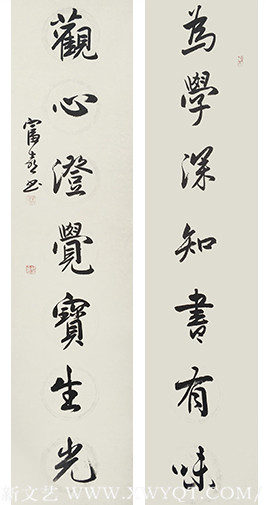 為學深知書有味
觀心澄覺寶生光
新文艺 WWW.XWYQT.COM